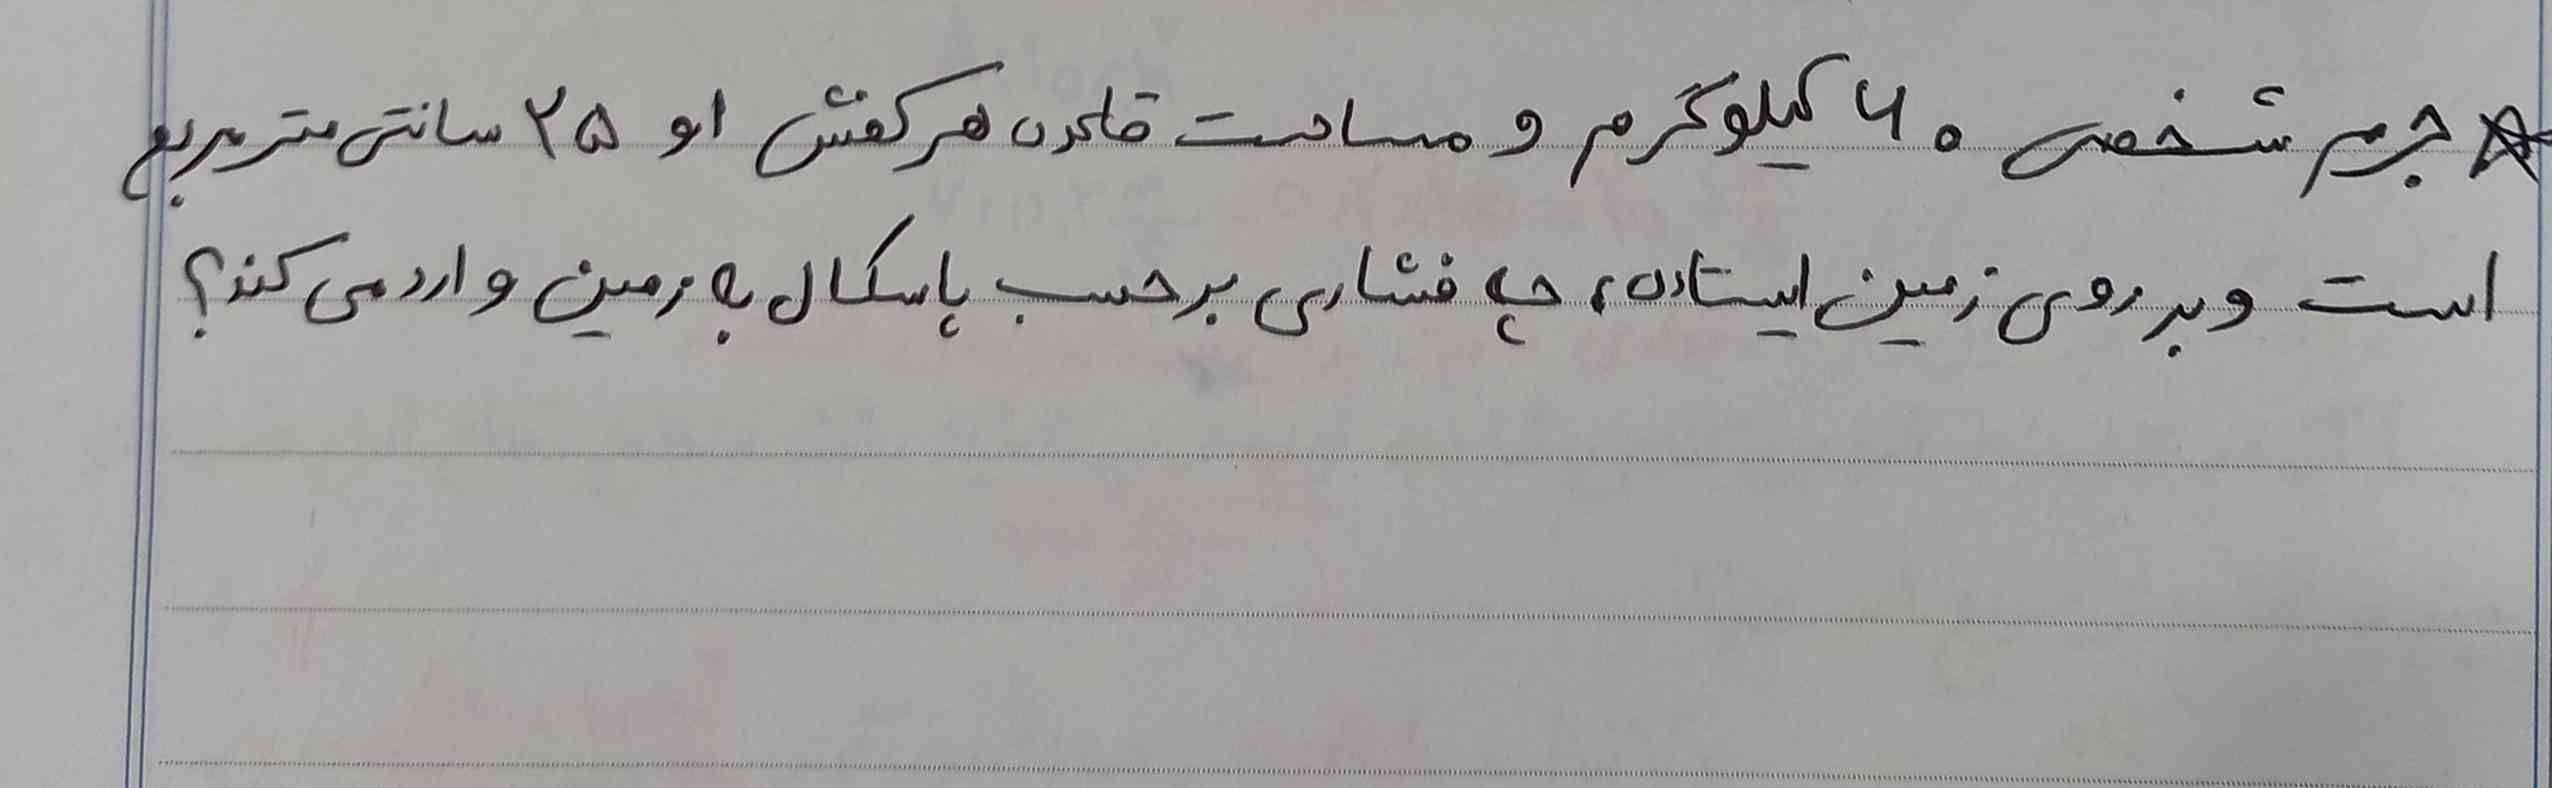 ☆ جرم شخصی ۶۰ کیلوگرم و مساحت قاعده هر کفش او ۲۵ سانتی متر مربع
است و بر روی زمین ایستاده، چه فشاری برحسب پاسکال به زمین وارد می کند؟